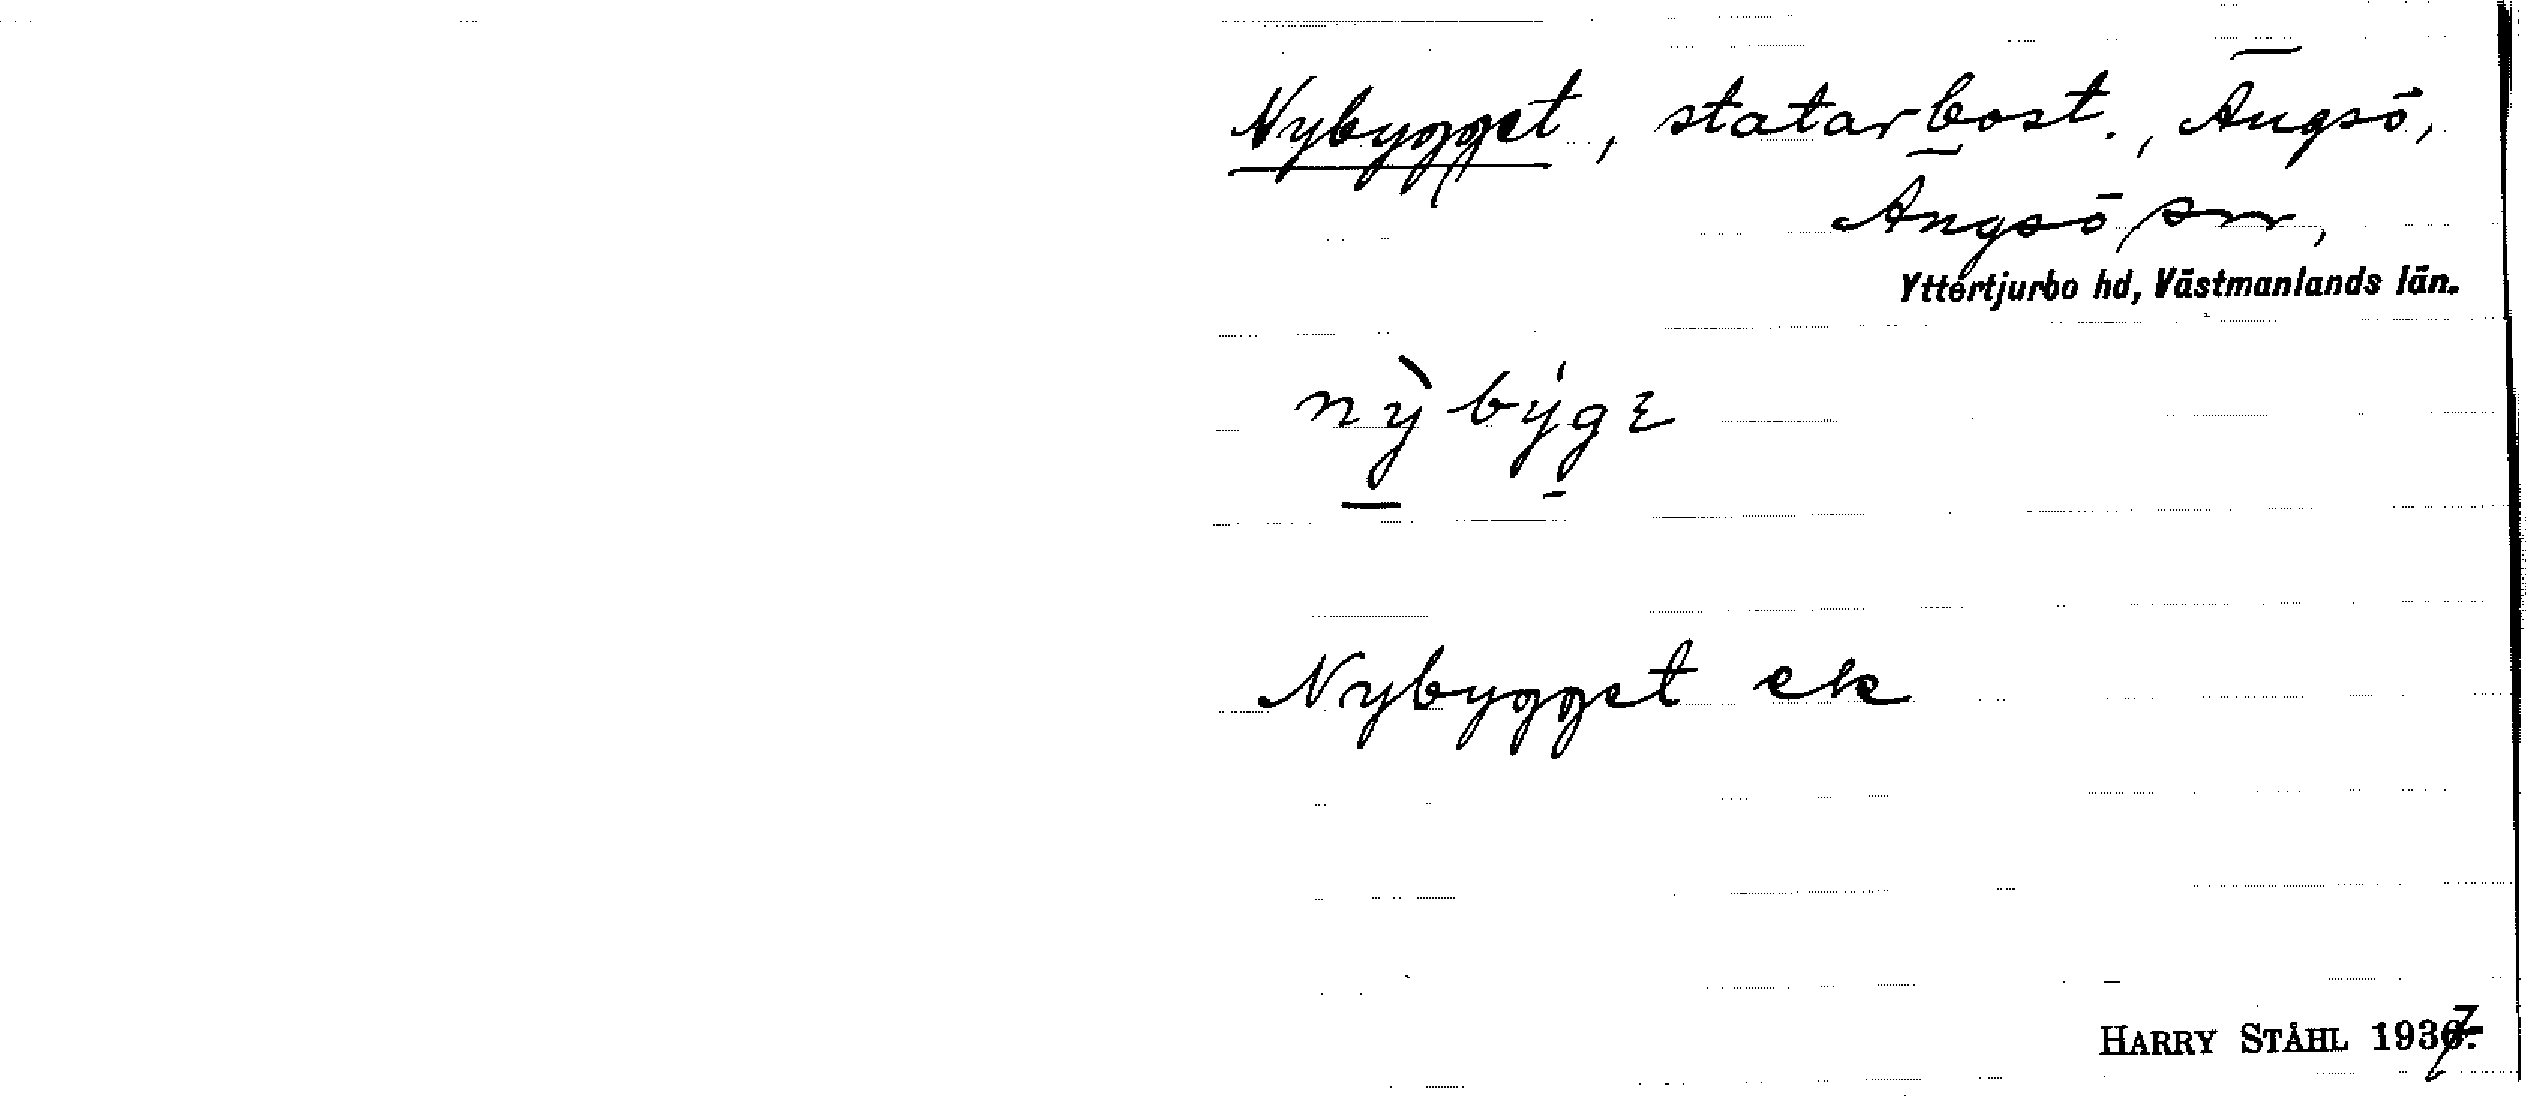 Nybygget, statarbost., Ängsö,
Ängsö sn,
Yttertjurbo hd, Västmanlands län.
nỳbýgε
Nybygget ek
HARRY STÅHL 1937.